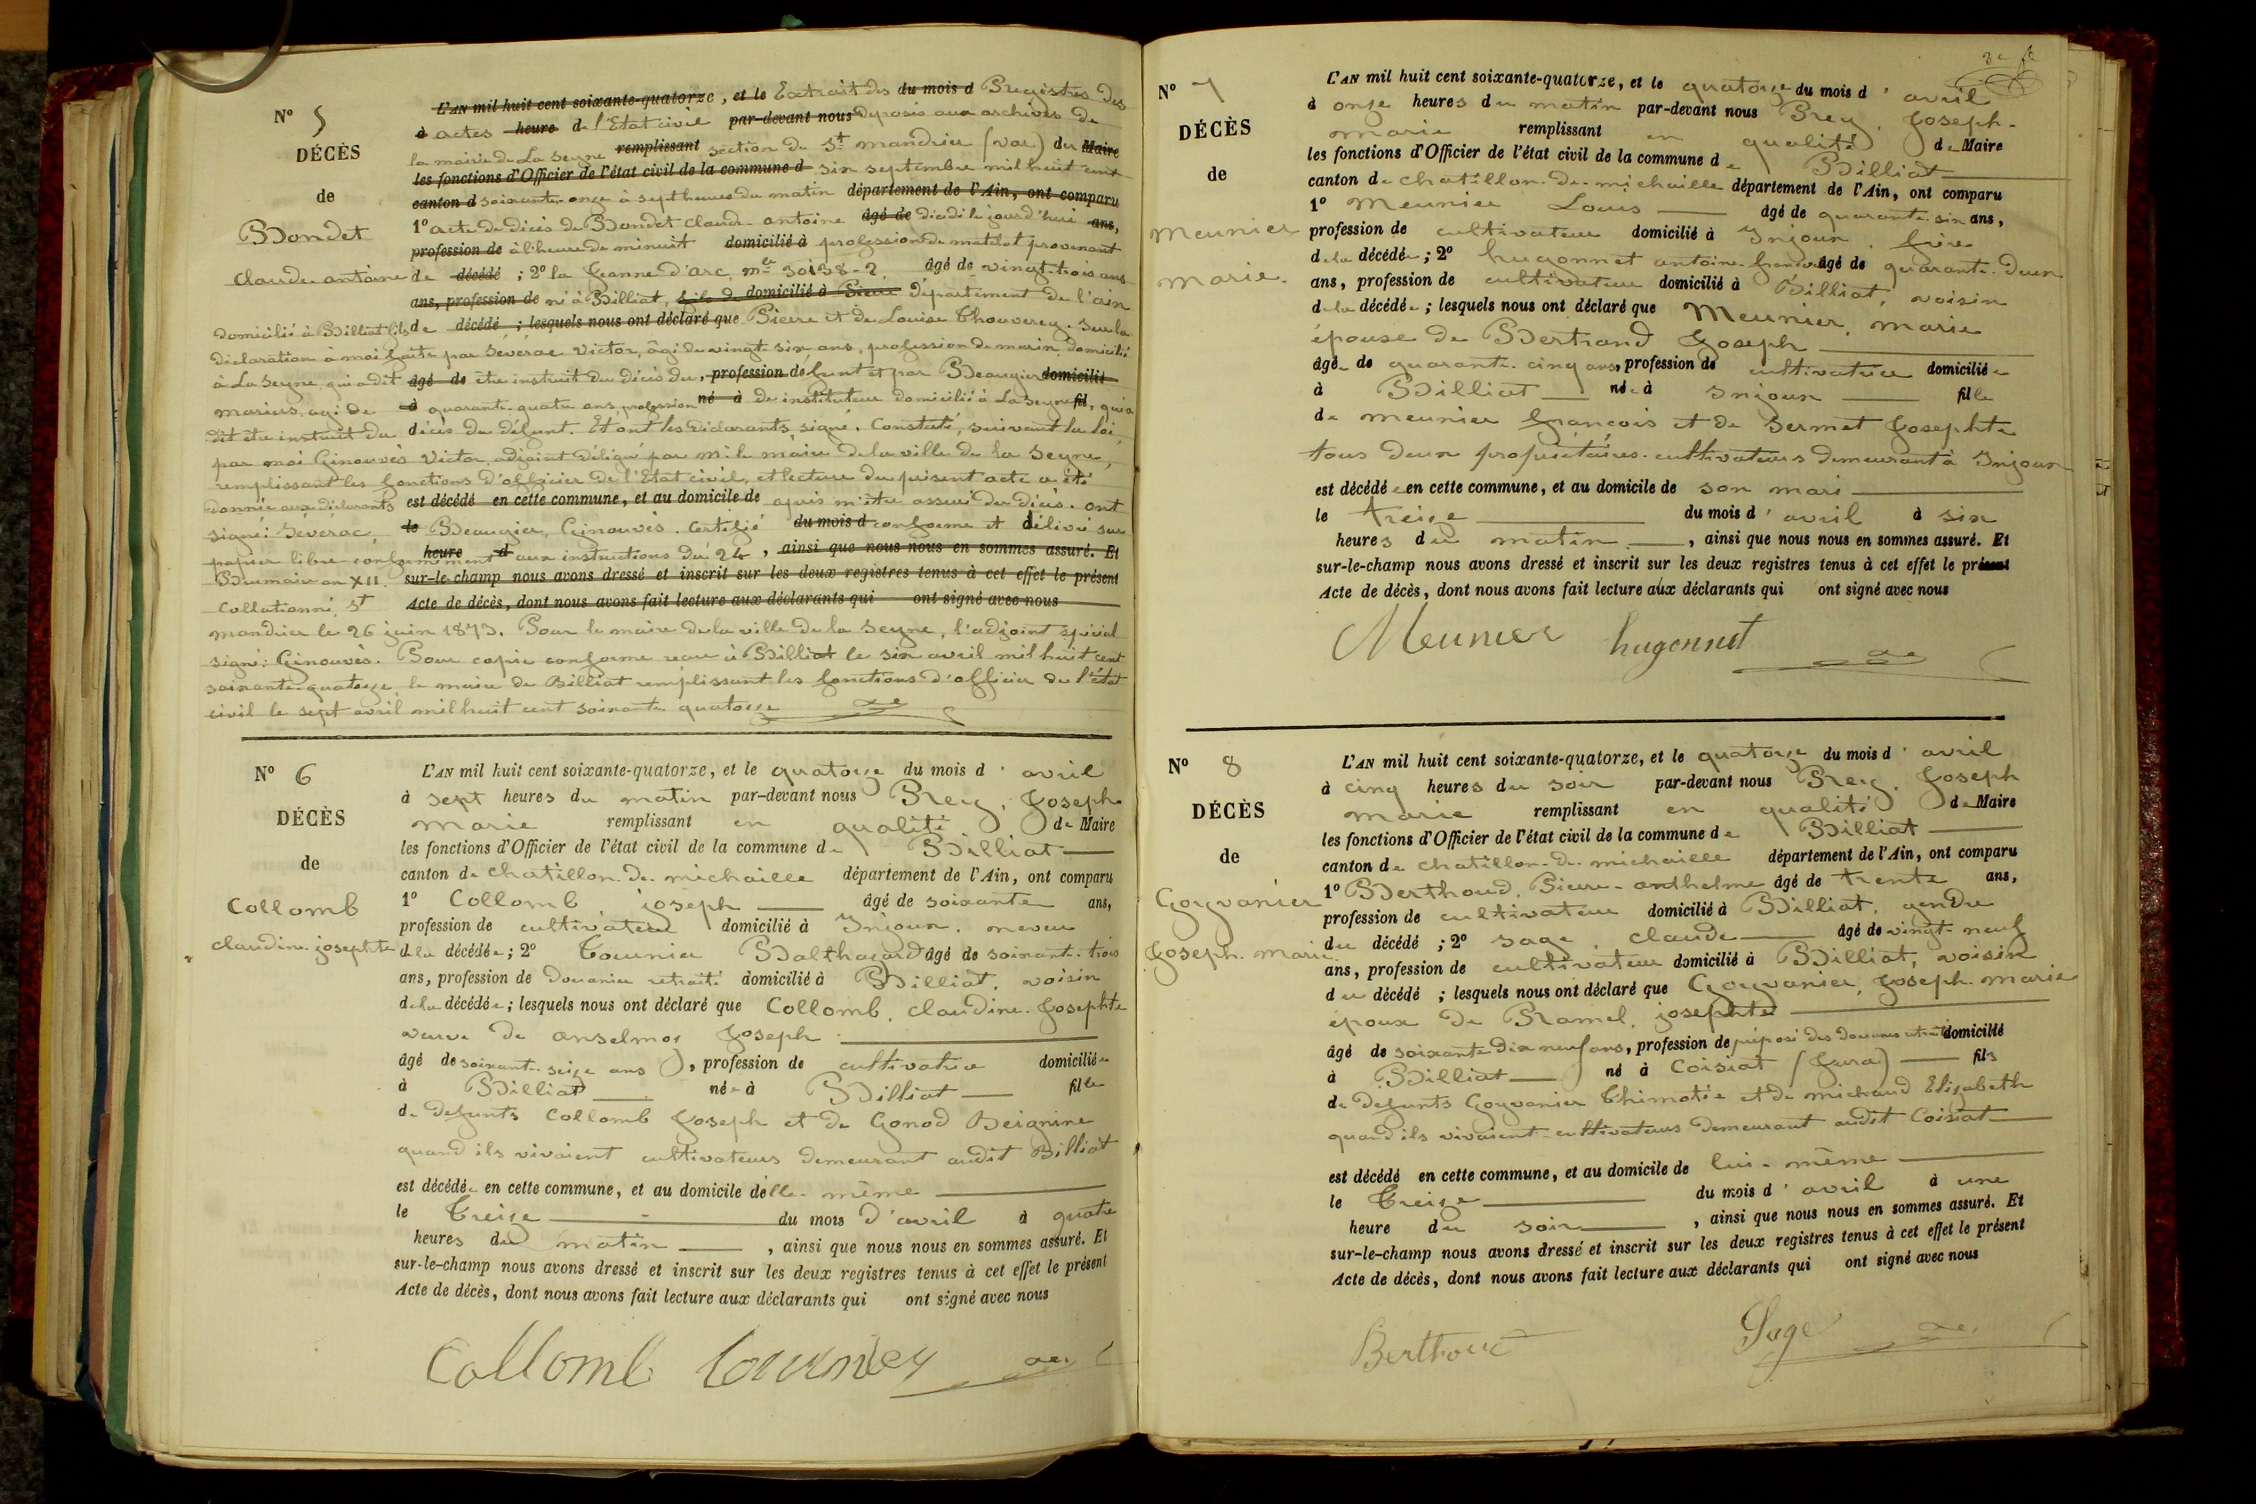 N° 5
DÉCÈS
de
Bondet
Claude antoine
L'AN mil huit cent soixante-quatorze, et le Extrait des du mois d Registres des
à actes heure de l'Etat civil par-devant nous déposés aux archives de
la mairie de La Seyne remplissant section de St mandrier (var) du Maire
les fonctions d'Officier de l'état civil de la commune d six septembre mil huit cent
canton d soixante-onze à sept heures du matin département de l'Ain, ont comparu
1° acte de décès de Bondet Claude-antoine âgé de décédé le jour d'hui ans,
profession de à l'heure de minuit domicilié à profession de matelot provenant
de décédé ; 2° la Jeanne d'arc, mle 30138-2, âgé de vingt-trois ans
ans, profession de né à Billiat, fils de domicilié à Pierre département de l'ain
domicilié à Billiat fils de décédé ; lesquels nous ont déclaré que Pierre et de Louise Chouverey. Sur la
déclaration à moi faite par Séverac Victor, âgé de vingt-six ans, profession de marin, domicilié
à La Seyne, qui a dit âgé de être instruit du décès du, profession défunt et par Beaugier domicilié
marius, âgé de à quarante-quatre ans, profession né à de instituteur domicilié à La Seyne fil, qui a
dit être instruit du décès du défunt. Et ont les déclarants signé. Constaté, suivant la loi,
par moi Ginouvès Victor, adjoint délégué par Mr le maire de la ville de la Seyne,
remplissant les fonctions d'officier de l'Etat civil, et lecture du présent acte a été
donnée aux déclarants est décédé en cette commune, et au domicile de après m'être assuré du décès. ont
signé: Séverac, le Beaugier, Ginouvès. Certifié du mois d conforme et délivré sur
papier libre conformément heure d aux instructions du 24, ainsi que nous nous en sommes assuré. Et
Brumaire an XII. sur-le-champ nous avons dressé et inscrit sur les deux registres tenus à cet effet le présent
Collationné, St Acte de décès, dont nous avons fait lecture aux déclarants qui ont signé avec nous
mandrier le 26 juin 1873. Pour le maire de la ville de la Seyne, l'adjoint spécial
signé: Ginouvès. Pour copie conforme reçue à Billiat le six avril mil huit cent
soixante-quatorze, le maire de Billiat remplissant les fonctions d'officier de l'état
civil le sept avril mil huit cent soixante quatorze
N° 6
DÉCÈS
de
Collomb
claudine josephte
L'AN mil huit cent soixante-quatorze, et le quatorze du mois d'avril
à sept heures du matin par-devant nous Brey, Joseph
marie remplissant en qualité de Maire
les fonctions d'Officier de l'état civil de la commune de Billiat
canton de Chatillon-de-michaille département de l'Ain, ont comparu
1° Collomb joseph âgé de soixante ans,
profession de cultivateur domicilié à Injoux, neveu
de la décédée; 2° Tournier Balthazard âgé de soixante-trois
ans, profession de Douanier retraité domicilié à Billiat, voisin
de la décédée; lesquels nous ont déclaré que Collomb, claudine-Josephte
veuve de anselmoz Joseph
âgé de soixante-seize ans, profession de cultivatrice domiciliée
à Billiat née à Billiat fille
de defunts Collomb Joseph et de Gonod Beignine
quand ils vivaient cultivateurs demeurant audit Billiat
est décédée en cette commune, et au domicile d'elle-même
le Treize du mois d'avril à quatre
heures du matin, ainsi que nous nous en sommes assuré. Et
sur-le-champ nous avons dressé et inscrit sur les deux registres tenus à cet effet le présent
Acte de décès, dont nous avons fait lecture aux déclarants qui ont signé avec nous
Collomb tournier
N° 7
DÉCÈS
de
Meunier
marie.
L'AN mil huit cent soixante-quatorze, et le quatorze du mois d'avril
à onze heures du matin par-devant nous Brey, Joseph-
marie remplissant en qualité de Maire
les fonctions d'Officier de l'état civil de la commune de Billiat
canton de chatillon-de-michaille département de l'Ain, ont comparu
1° Meunier Louis âgé de quarante-six ans,
profession de cultivateur domicilié à Injoux, frère
de la décédée; 2° hugonnet antoine-françois âgé de quarante-deux
ans, profession de cultivateur domicilié à Billiat, voisin
de la décédée; lesquels nous ont déclaré que Meunier, marie
épouse de Bertrand Joseph
âgée de quarante-cinq ans, profession de cultivatrice domiciliée
à Billiat née à Injoux fille
de meunier françois et de Sermet Josephte
tous deux propriétaires-cultivateurs demeurant à Injoux
est décédée en cette commune, et au domicile de son mari
le treize du mois d'avril à six
heures du matin, ainsi que nous nous en sommes assuré. Et
sur-le-champ nous avons dressé et inscrit sur les deux registres tenus à cet effet le présent
Acte de décès, dont nous avons fait lecture aux déclarants qui ont signé avec nous
Meunier hugonnet
N° 8
DÉCÈS
de
Goyvanier
Joseph-Marie
L'AN mil huit cent soixante-quatorze, et le quatorze du mois d'avril
à cinq heures du soir par-devant nous Brey, Joseph
marie remplissant en qualité de Maire
les fonctions d'Officier de l'état civil de la commune de Billiat
canton de chatillon-de-michaille département de l'Ain, ont comparu
1° Berthoud, Pierre-anthelme âgé de trente ans,
profession de cultivateur domicilié à Billiat, gendre
du décédé ; 2° sage, claude âgé de vingt-neuf
ans, profession de cultivateur domicilié à Billiat, voisin
du décédé ; lesquels nous ont déclaré que Goyvanier, Joseph-marie
époux de Ramel, josephte
âgé de soixante dix neuf ans, profession de préposé des douanes retraité domicilié
à Billiat né à Coisiat (Jura) fils
de defunts Goyvanier Thimotée et de michaud Elizabeth
quand ils vivaient-cultivateurs demeurant audit Coisiat
est décédé en cette commune, et au domicile de lui-même
le Treize du mois d'avril à une
heure du soir, ainsi que nous nous en sommes assuré. Et
sur-le-champ nous avons dressé et inscrit sur les deux registres tenus à cet effet le présent
Acte de décès, dont nous avons fait lecture aux déclarants qui ont signé avec nous
Berthoud Sage